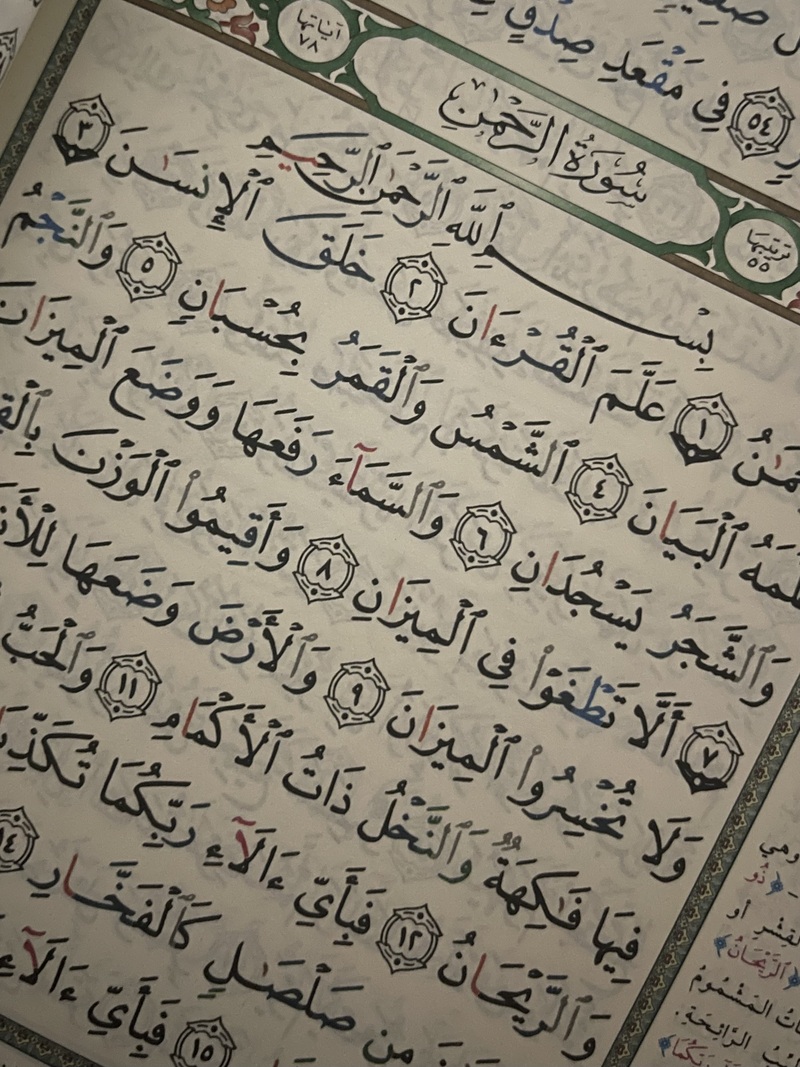 ٥٤ فِي مَقْعَدِ صِدْقٍ
آيَاتُهَا ٧٨
سُورَةُ الرَّحْمَٰنِ
تَرْتِيبُهَا ٥٥
بِسْمِ ٱللَّهِ ٱلرَّحْمَٰنِ ٱلرَّحِيمِ
١ عَلَّمَ ٱلْقُرْءَانَ ٢ خَلَقَ ٱلْإِنسَٰنَ ٣
ٱلْبَيَانَ ٤ ٱلشَّمْسُ وَٱلْقَمَرُ بِحُسْبَانٍ ٥ وَٱلنَّجْمُ
وَٱلشَّجَرُ يَسْجُدَانِ ٦ وَٱلسَّمَآءَ رَفَعَهَا وَوَضَعَ ٱلْمِيزَانَ
٧ أَلَّا تَطْغَوْا۟ فِي ٱلْمِيزَانِ ٨ وَأَقِيمُوا۟ ٱلْوَزْنَ
وَلَا تُخْسِرُوا۟ ٱلْمِيزَانَ ٩ وَٱلْأَرْضَ وَضَعَهَا
فِيهَا فَٰكِهَةٌ وَٱلنَّخْلُ ذَاتُ ٱلْأَكْمَامِ ١١ وَٱلْحَبُّ
وَٱلرَّيْحَانُ ١٢ فَبِأَيِّ ءَالَآءِ رَبِّكُمَا
مِن صَلْصَٰلٍ كَٱلْفَخَّارِ ١٤
١٥ فَبِأَيِّ ءَالَآءِ
وهي
﴿ذُو
القِشْرِ أو
﴿ٱلرَّيْحَانُ﴾
المَشْمُومُ
الرَّائِحَةِ.